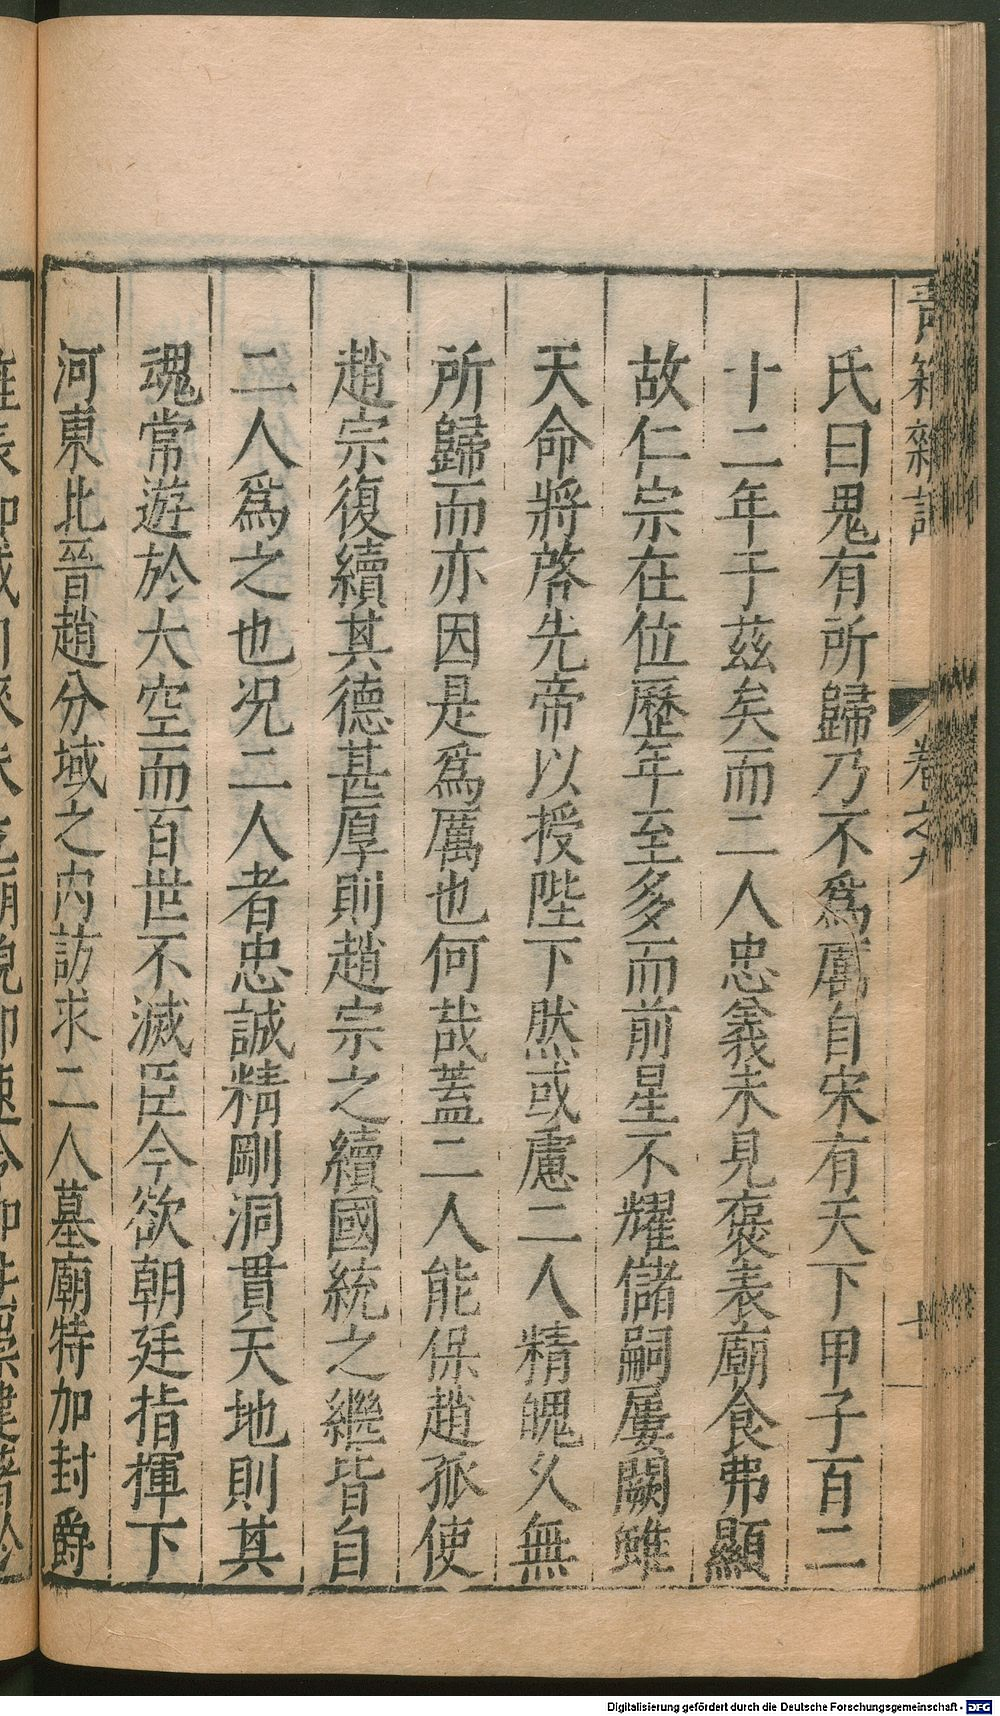 青箱雜記
卷之九
十
氏曰鬼有所歸乃不爲厲自宋有天下甲子百二
十二年于茲矣而二人忠義未見褒表廟食弗顯
故仁宗在位歷年至多而前星不耀儲嗣屢闕雖
天命將啓先帝以授陛下然或慮二人精魄久無
所歸而亦因是爲厲也何哉蓋二人能保趙孤使
趙宗復續其德甚厚則趙宗之續國統之繼皆自
二人爲之也况二人者忠誠精剛洞貫天地則其
魂常遊於大空而百世不滅臣今欲朝廷指揮下
河東北晉趙分域之内訪求二人墓廟特加封爵
Digitalisierung gefördert durch die Deutsche Forschungsgemeinschaft - DFG